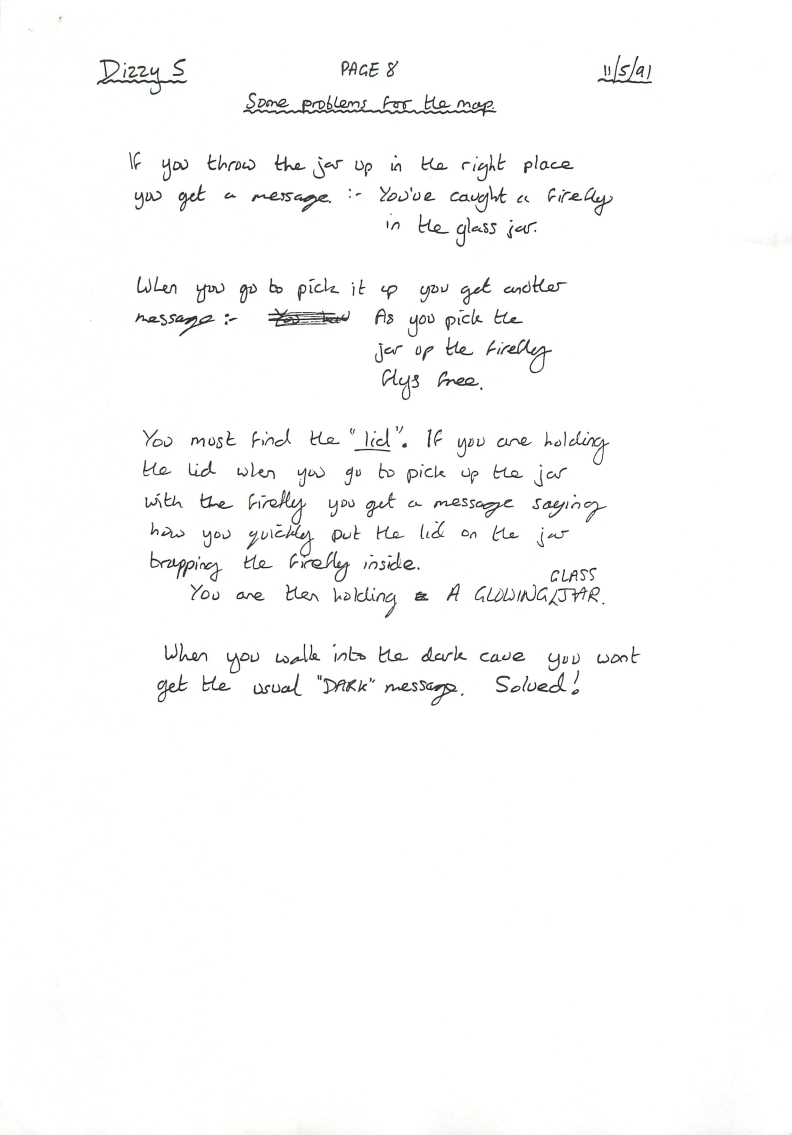 Dizzy 5 PAGE 8 11/5/91
Some problems for the map
If you throw the jar up in the right place
you get a message. :- You've caught a firefly
in the glass jar.
When you go to pick it up you get another
message :- As you pick the
jar up the firefly
flys free.
You must find the "lid". If you are holding
the lid when you go to pick up the jar
with the firefly you get a message saying
how you quickly put the lid on the jar
trapping the firefly inside.
GLASS
You are then holding A GLOWING JAR.
When you walk into the dark cave you wont
get the usual "DARK" message. Solved!